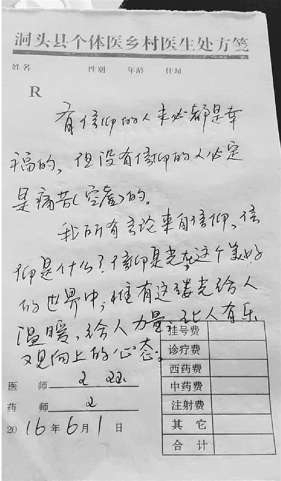 洞头县个体医乡村医生处方笺
姓名 性别 年龄 住址
R
有信仰的人未必都是幸
福的，但没有信仰的人必定
是痛苦(空虚)的。
我所有言论来自信仰，信
仰是什么？信仰是光在这个美好
的世界中，惟有这缕光给人
温暖，给人力量，让人有乐
观向上的心态。
挂号费
诊疗费
西药费
中药费
注射费
其 它
合 计
医 师
药 师
2016年6月1日